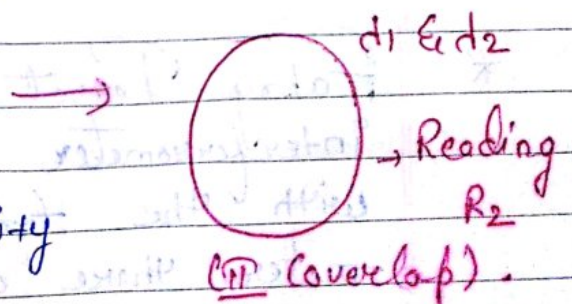 λ1 & λ2
→ Reading
R2
ity
(II overlap).